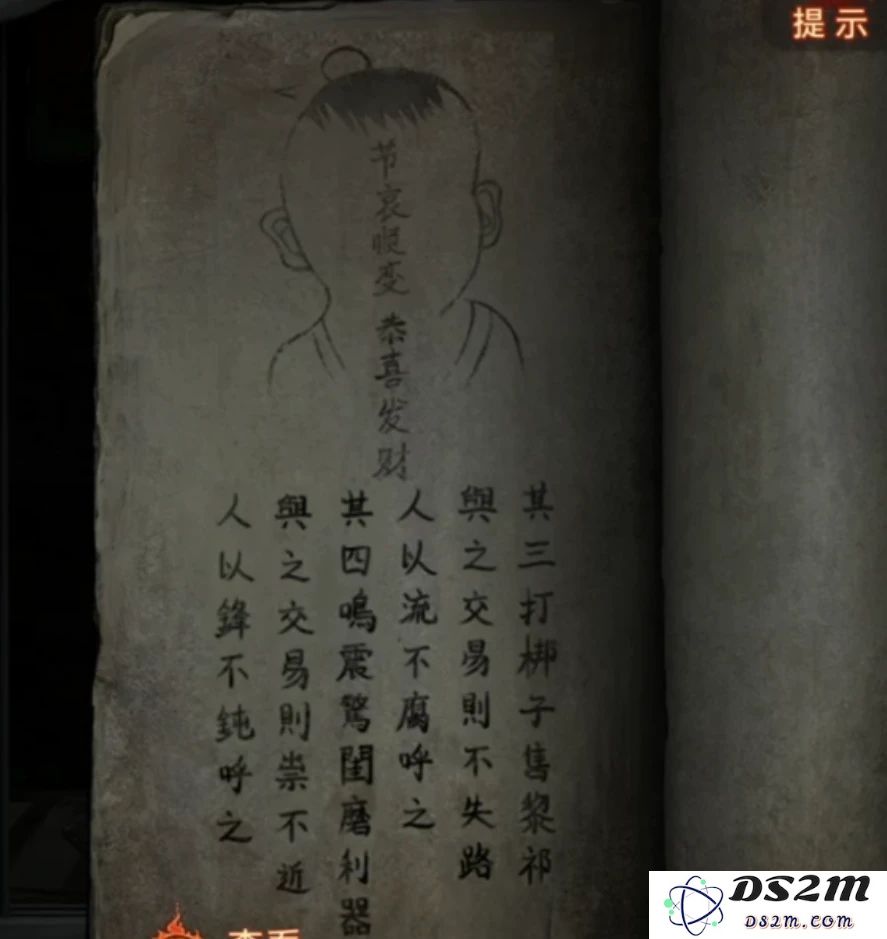 提示
节哀顺变 恭喜发财
其三打梆子售黎祁
與之交易則不失路
人以流不腐呼之
其四鳴震驚閨磨利器
與之交易則祟不近
人以鋒不鈍呼之
查看
DS2M
DS2M.COM